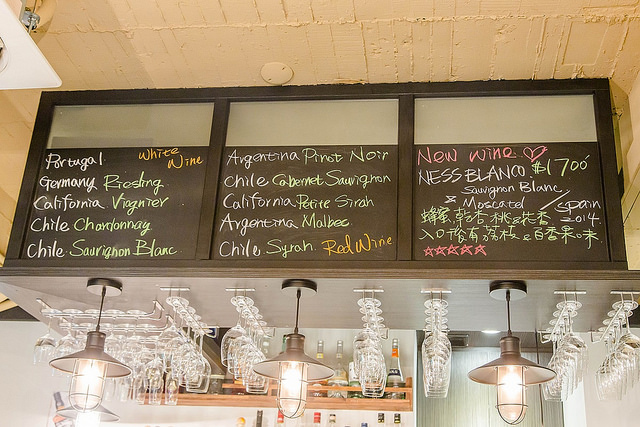 Portugal white Wine
Germany Riesling
California Viognier
Chile Chardonnay
Chile Sauvignon Blanc
Argentina Pinot Noir
Chile Cabernet Sauvignon
California Petite Sirah
Argentina Malbec
Chile Syrah Red Wine
New wine ♡
NESS BLANCO $1700
Sauvignon Blanc
& Moscatel / Spain
蜂蜜, 乾杏桃&扶杏 2014
入口除有荔枝&百香果味
☆☆☆☆☆